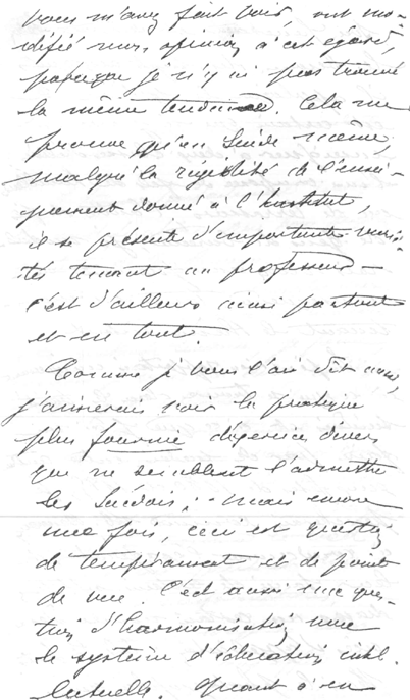 vous m'avez fait voir, ont mo-
difié mon opinion à cet égard,
parce que je n'y ai pas trouvé
la même tendance. Cela me
prouve qu'en Suède même,
malgré la rigidité de l'ensei-
gnement donné à l'Institut,
il se présente d'importantes varié-
tés tenant au professeur –
c'est d'ailleurs ainsi partout
et en tout.
Comme je vous l'ai dit aussi,
j'aimerais voir la pratique
plus fournie d'exercices divers
que ne semblent l'admettre
les Suédois; mais encore
une fois, ceci est question
de tempérament et de point
de vue. C'est aussi une ques-
tion d'harmonisation avec
le système d'éducation intel-
lectuelle. Quant à ce